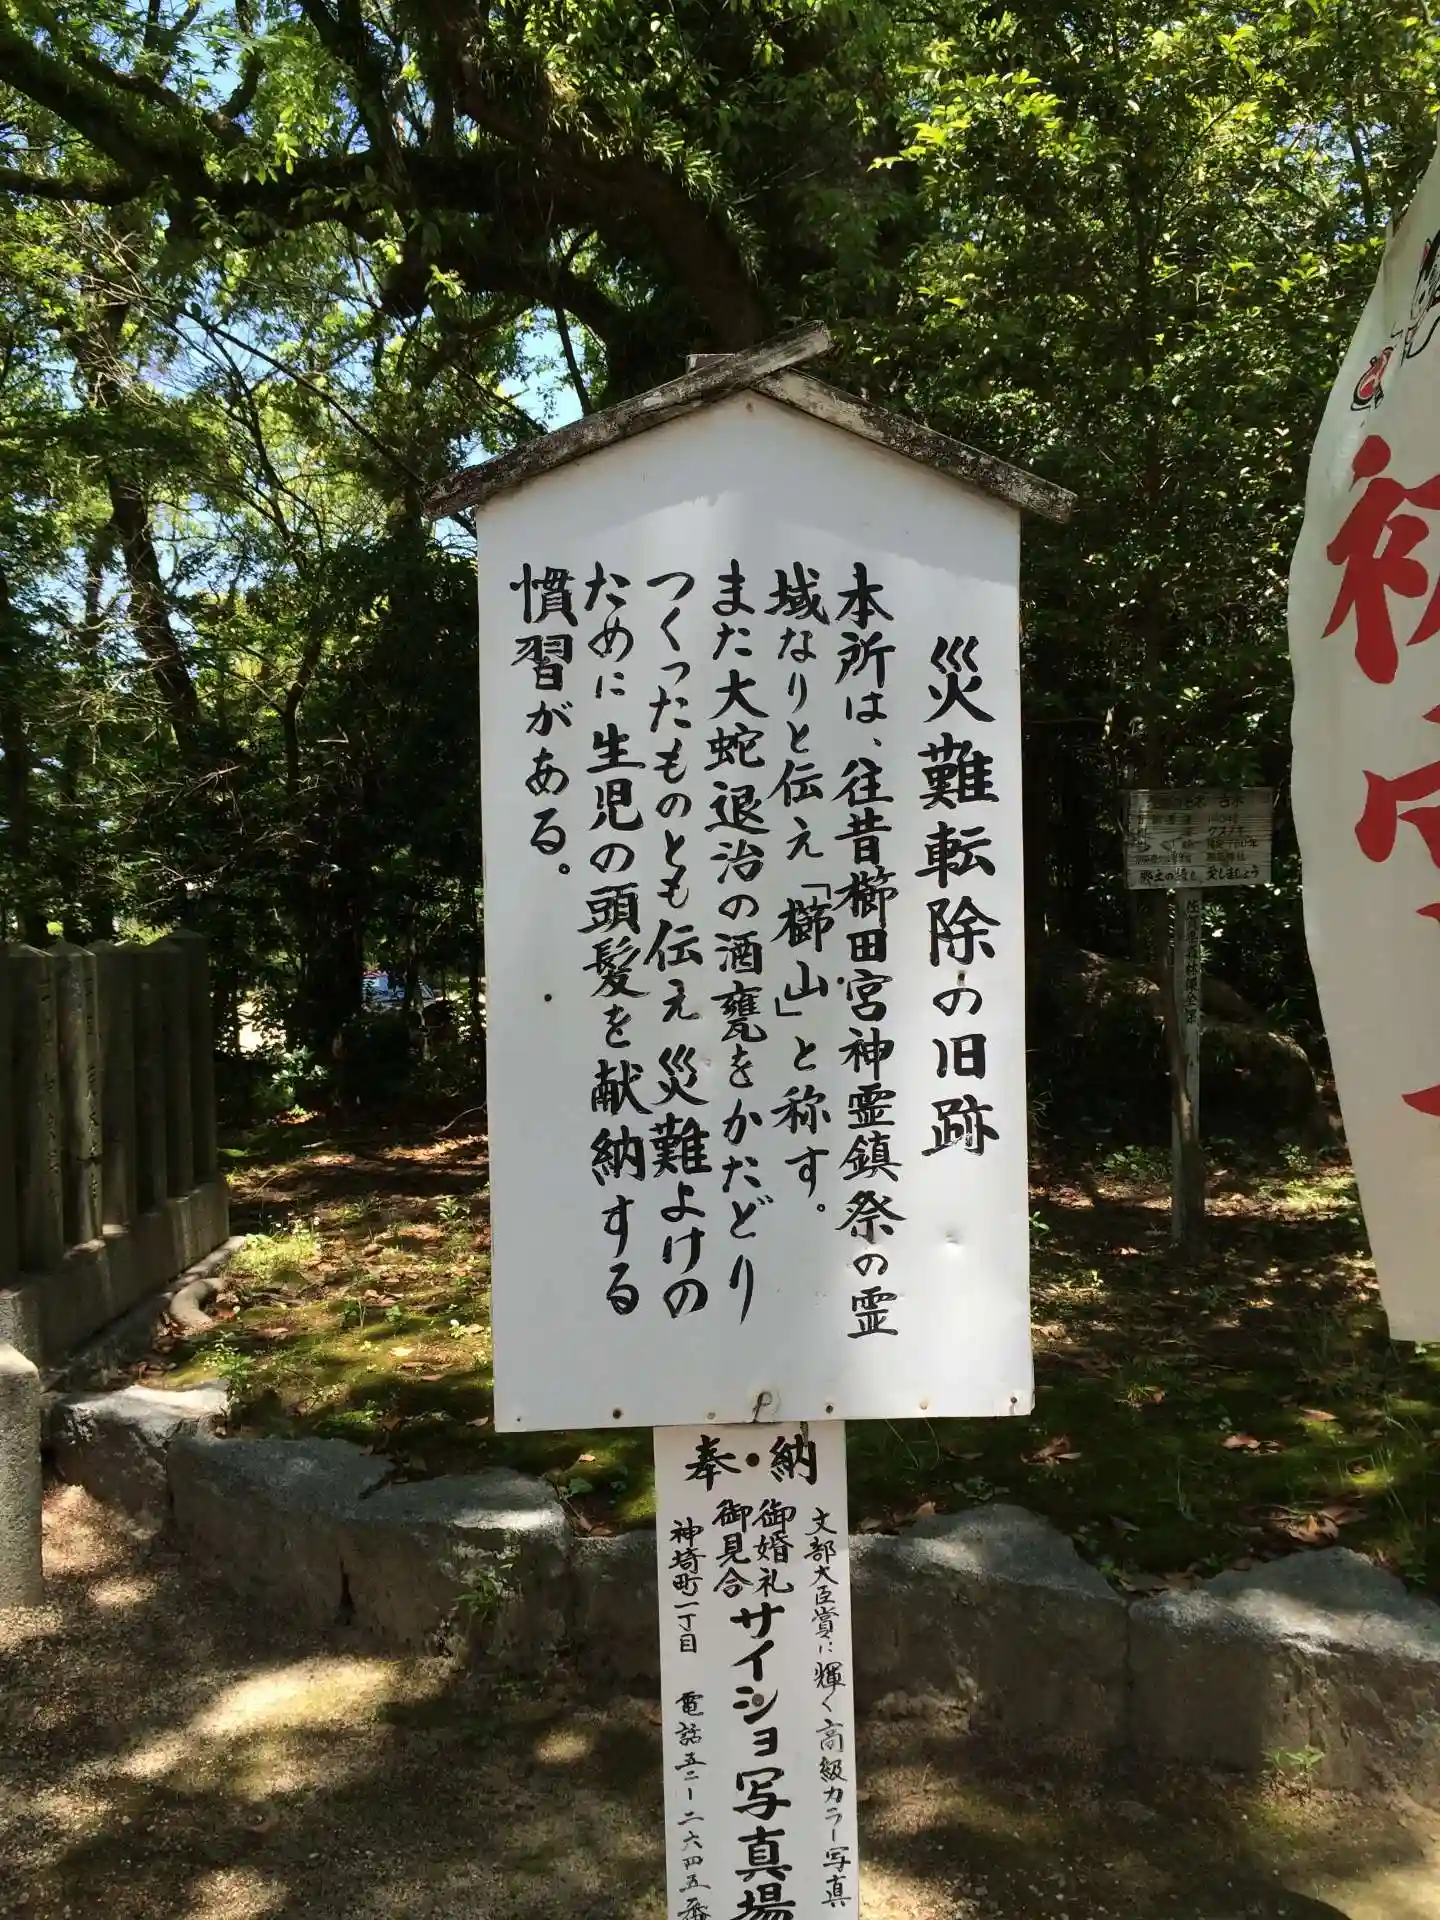 災難転除の旧跡
本所は、往昔櫛田宮神霊鎮祭の霊
域なりと伝え「櫛山」と称す。
また大蛇退治の酒甕をかたどり
つくったものとも伝え災難よけの
ために生児の頭髪を献納する
慣習がある。
奉納
文部大臣賞に輝く高級カラー写真
御婚礼
御見合
サイショ写真場
神埼町一丁目 電話五二ー二六四五番
クスノキ
郷土の緑を愛しましょう
初
宮